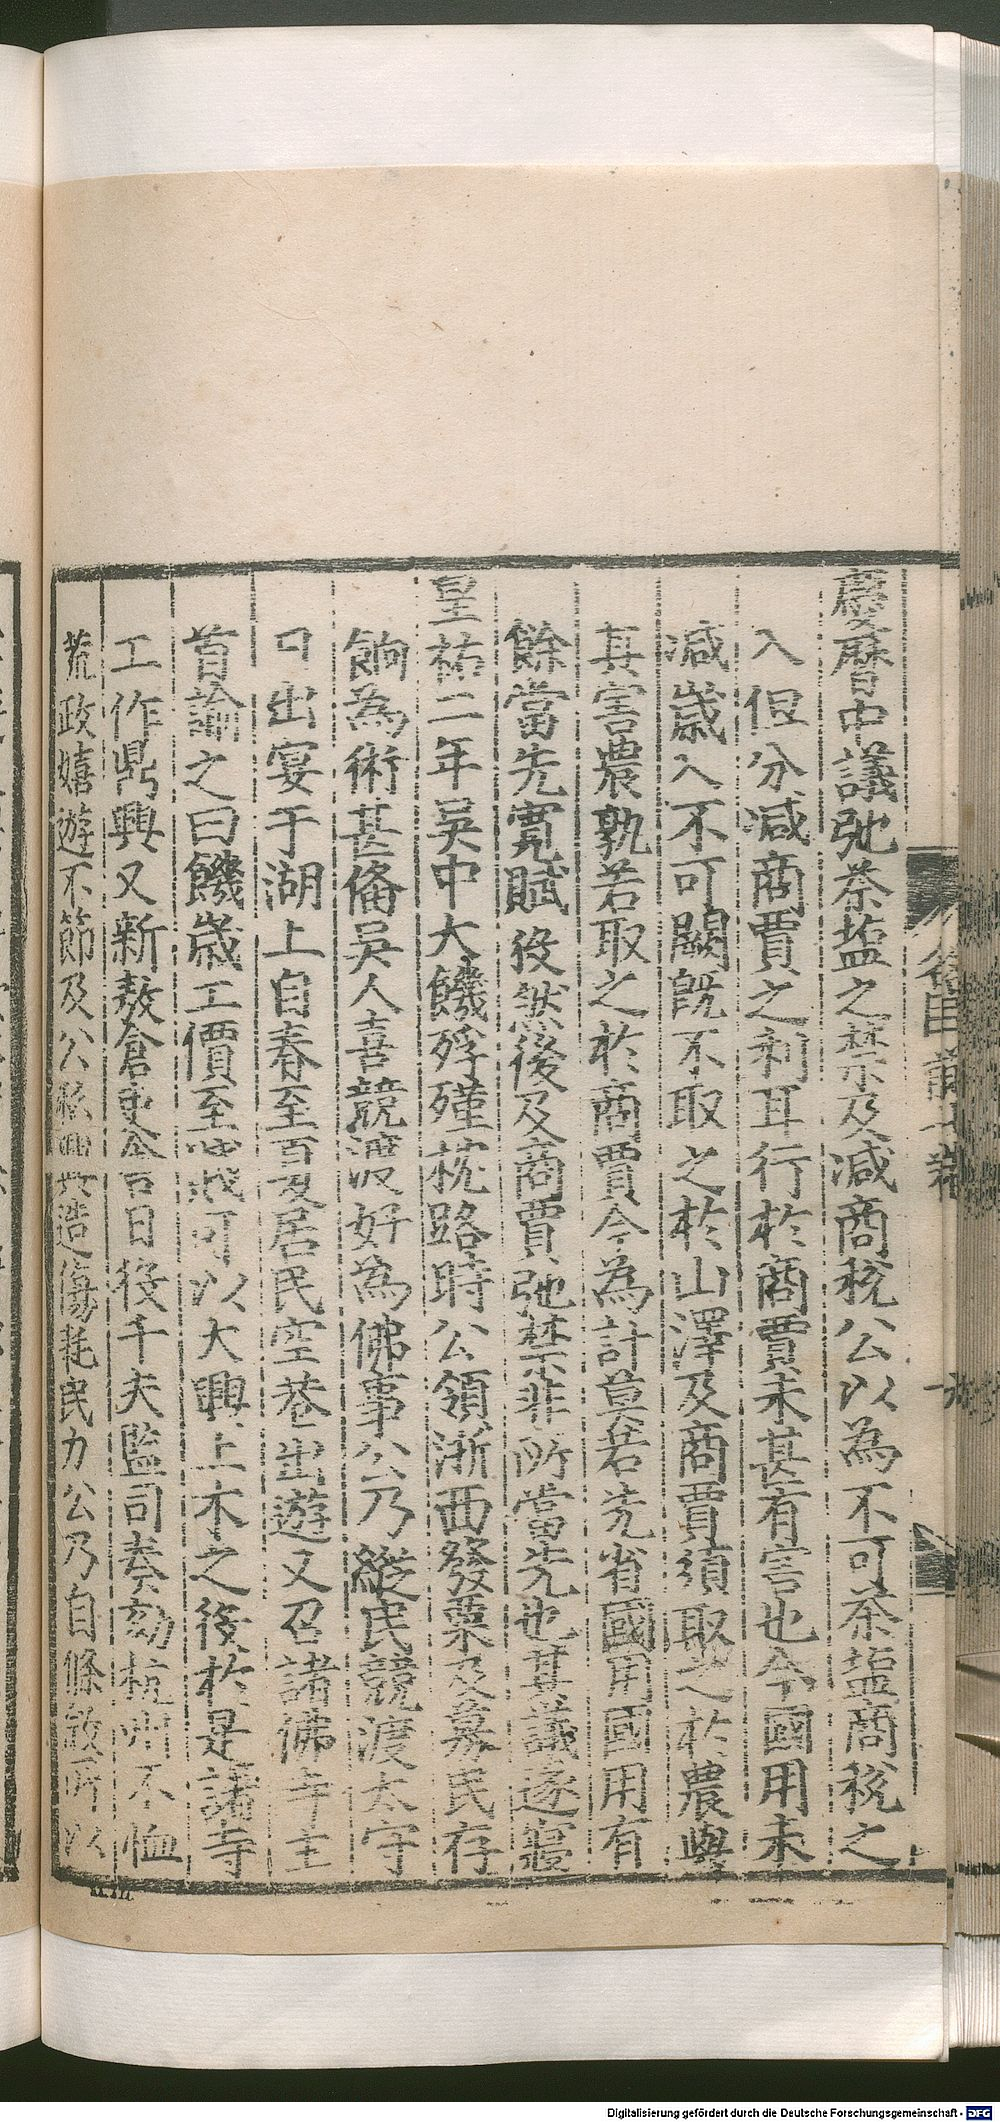 慶曆中議弛茶塩之禁及減商稅公以為不可茶塩商稅之
入但分減商賈之利耳行於商賈未甚有害也今國用未
減歲入不可闕既不取之於山澤及商賈須取之於農與
其害農孰若取之於商賈今為計莫若先省國用國用有
餘當先寬賦役然後及商賈弛禁非所當先也其議遂寢
皇祐二年吳中大饑殍殣枕路時公領浙西發粟及募民存
餉為術甚俻吳人喜競渡好為佛事公乃縱民競渡太守
日出宴于湖上自春至夏居民空巷出遊又召諸佛寺主
首諭之曰饑歲工價至賤可以大興土木之後於是諸寺
工作鼎興又新敖倉吏舍日役千夫監司奏劾杭州不恤
荒政嬉遊不節及公私興造傷耗民力公乃自條敘所以
Digitalisierung gefördert durch die Deutsche Forschungsgemeinschaft - DFG